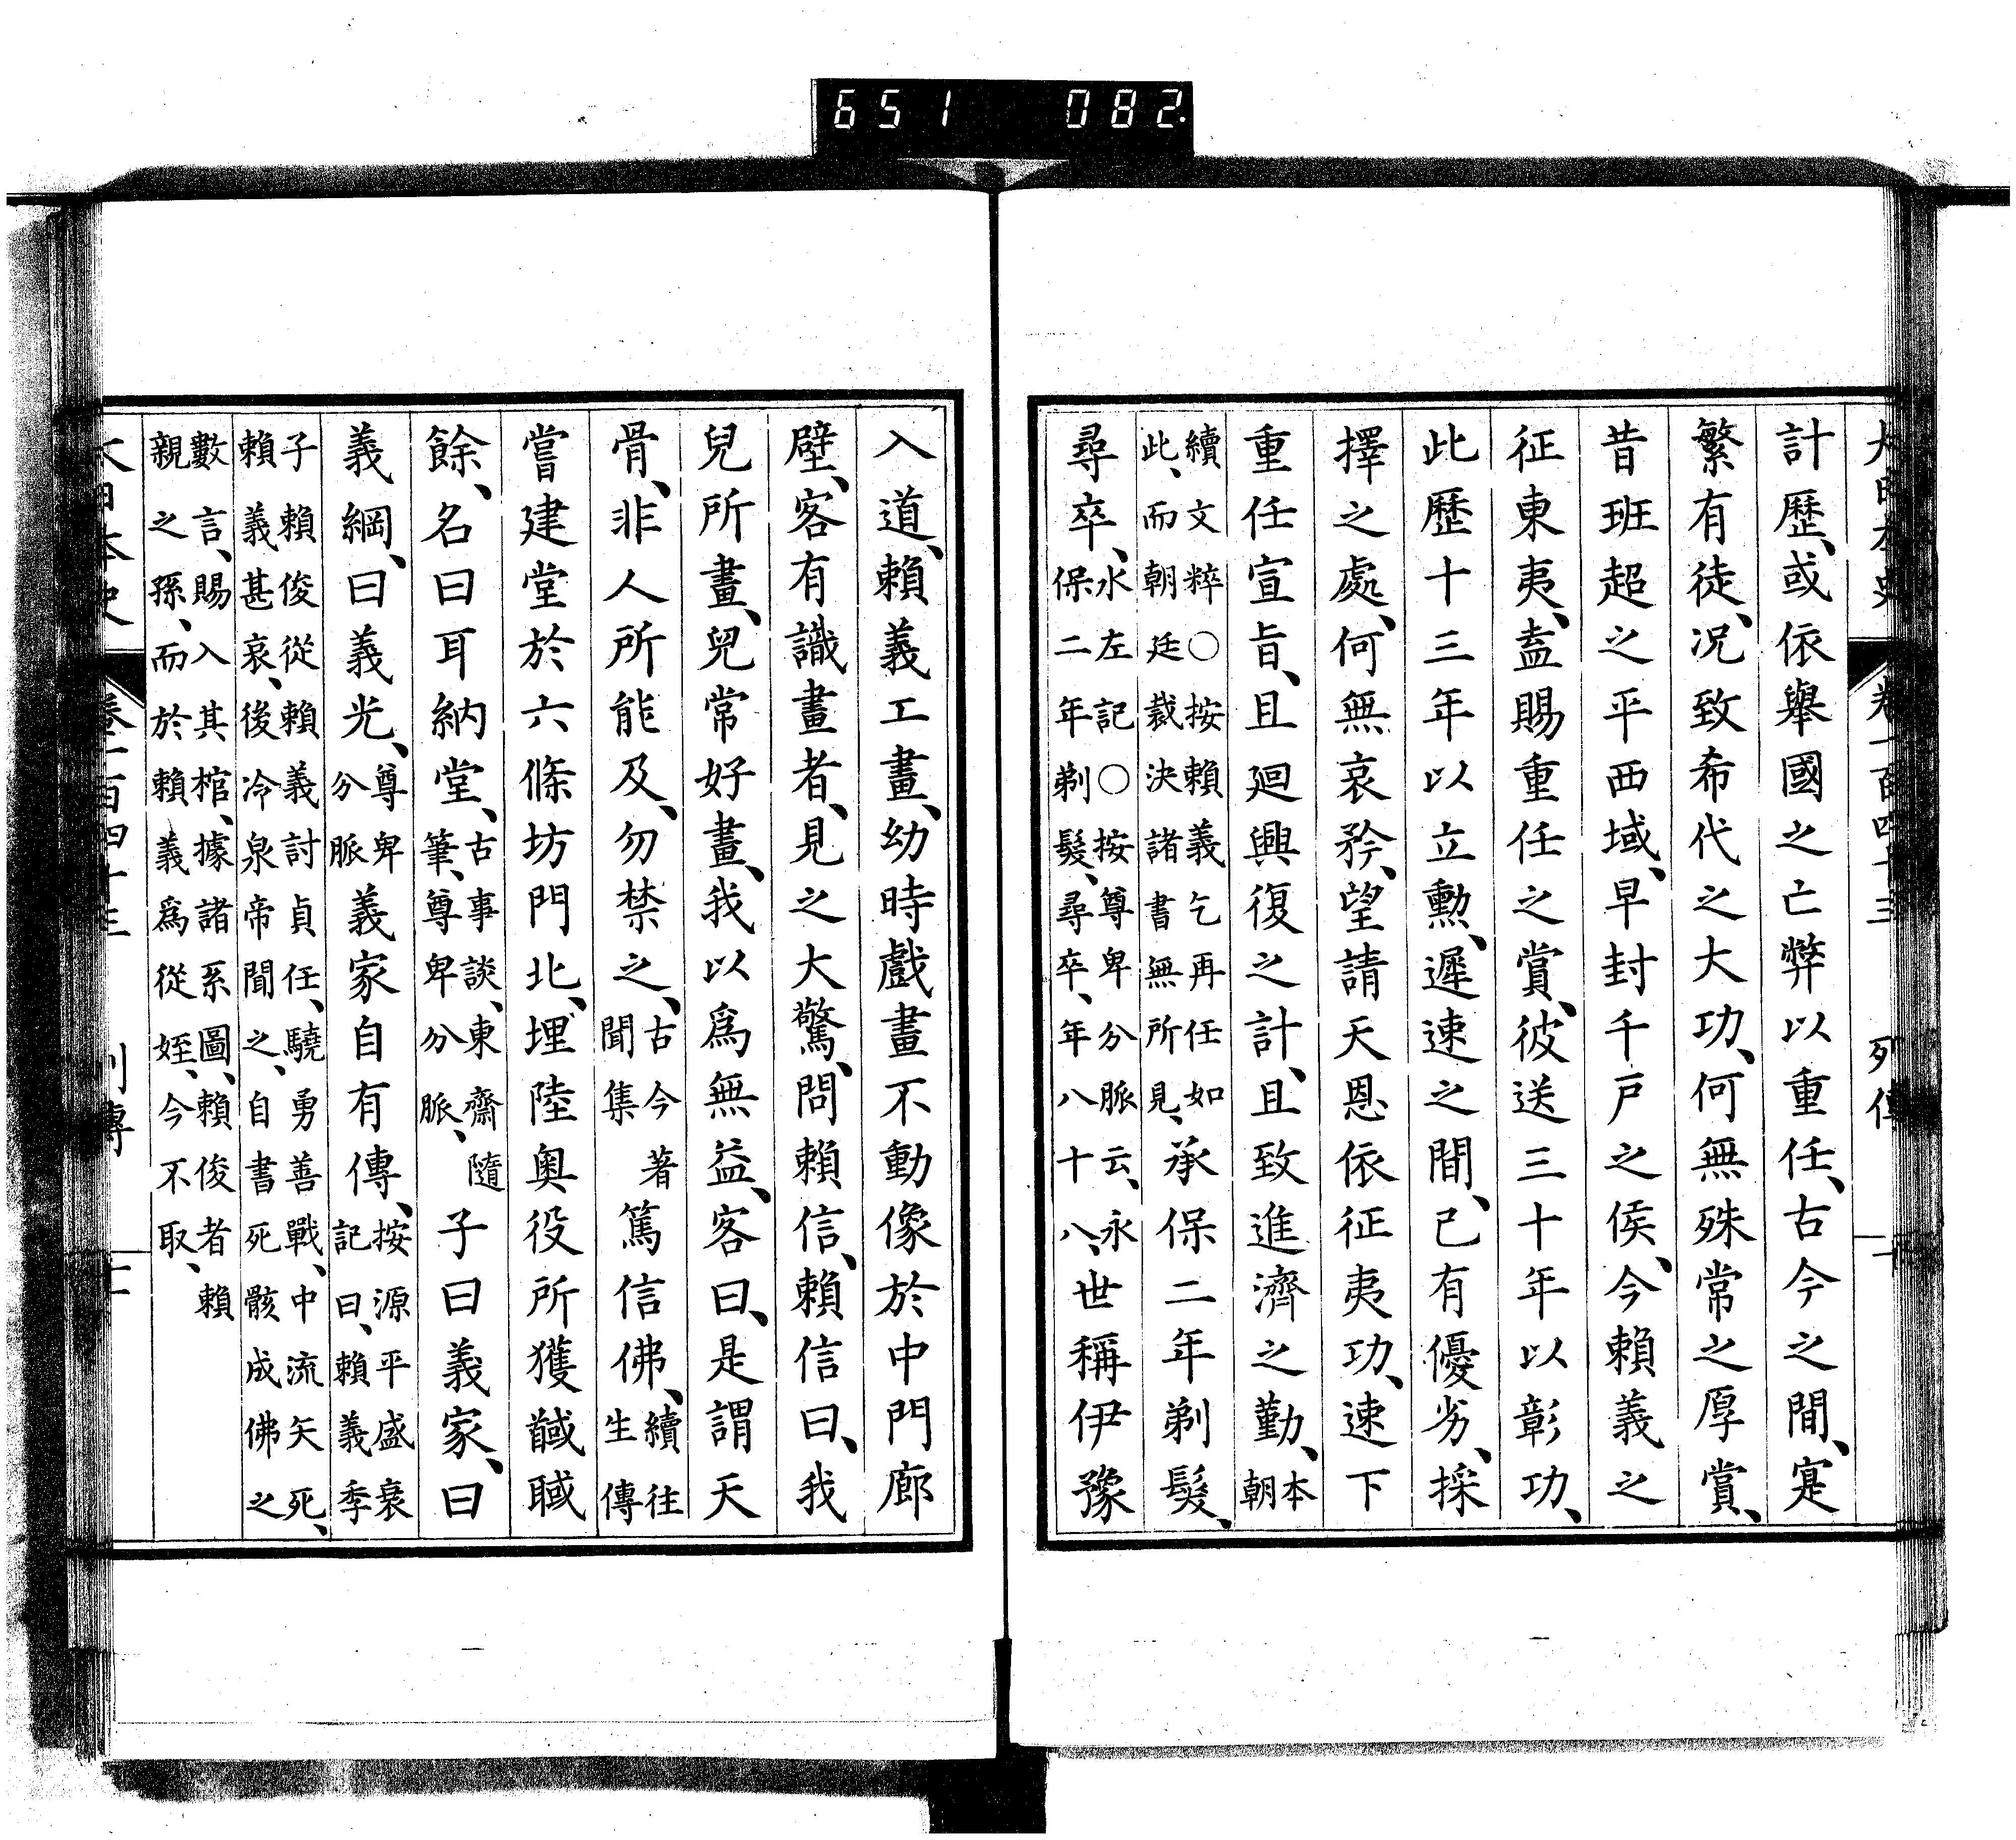 651 082
大日本史 卷一百四十三 列傳
計歷、或依舉國之亡弊以重任、古今之間、寔
繁有徒、况致希代之大功、何無殊常之厚賞、
昔班超之平西域、早封千戸之侯、今賴義之
征東夷、盍賜重任之賞、彼送三十年以彰功、
此歷十三年以立勲、遲速之間、已有優劣、採
擇之處、何無哀矜、望請天恩依征夷功、速下
重任宣旨、且廻興復之計、且致進濟之勤、本朝
續文粹〇按賴義乞再任如此、而朝廷裁決諸書無所見、承保二年剃髮、
尋卒、水左記〇按尊卑分脈云、永保二年剃髮、尋卒、年八十八、世稱伊豫
入道、賴義工畫、幼時戲畫不動像於中門廊
壁、客有識畫者、見之大驚、問賴信、賴信曰、我
兒所畫、兒常好畫、我以爲無益、客曰、是謂天
骨、非人所能及、勿禁之、古今著聞集篤信佛、續往生傳
嘗建堂於六條坊門北、埋陸奧役所獲馘聝
餘、名曰耳納堂、古事談、東齋隨筆、尊卑分脈、子曰義家、曰
義綱、曰義光、尊卑分脈義家自有傳、按源平盛衰記曰、賴義季
子賴俊從賴義討貞任、驍勇善戰、中流矢死、賴義甚哀、後冷泉帝聞之、自書死骸成佛之
數言、賜入其棺、據諸系圖、賴俊者賴親之孫、而於賴義爲從姪、今不取、
大日本史 卷一百四十三 列傳